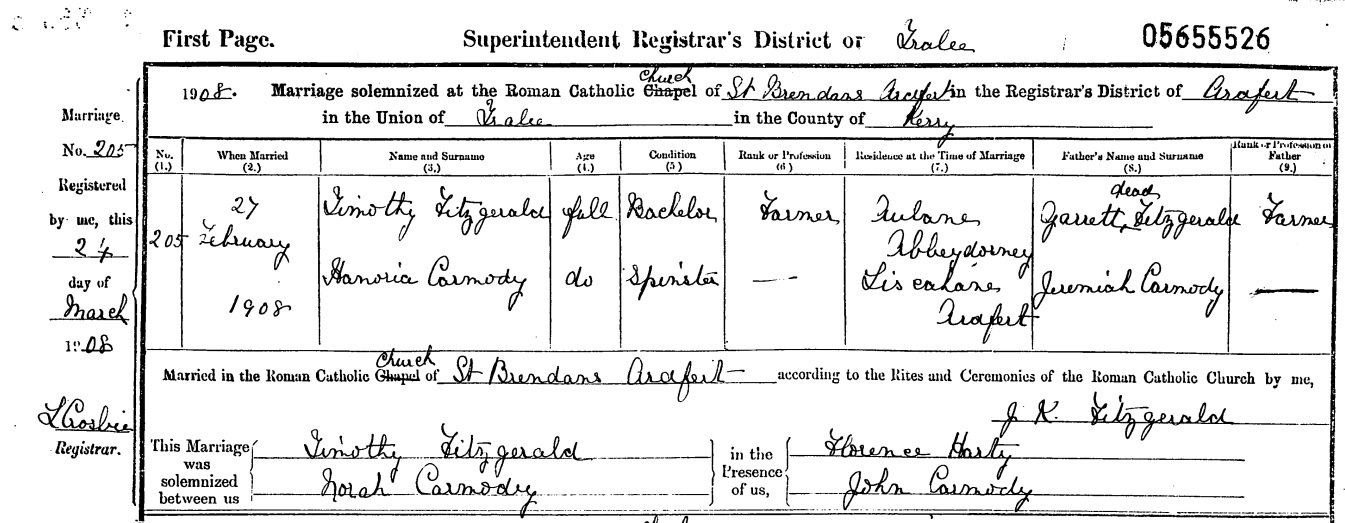 First Page. Superintendent Registrar's District of Tralee 05655526
1908. Marriage solemnized at the Roman Catholic Church Chapel of St Brendans Ardfert in the Registrar's District of Ardfert
in the Union of Tralee in the County of Kerry
Marriage
No. 205
Registered
by me, this
24
day of
March
1908
L Crosbie
Registrar.
No. (1.) When Married (2.) Name and Surname (3.) Age (4.) Condition (5) Rank or Profession (6) Residence at the Time of Marriage (7.) Father's Name and Surname (8.) Rank or Profession of Father (9.)
205 27 February 1908
Timothy Fitzgerald full Bachelor Farmer Aulane Abbeydorney Garrett Fitzgerald dead Farmer
Hanoria Carmody do Spinster — Liscahane Ardfert Jeremiah Carmody —
Married in the Roman Catholic Church Chapel of St Brendans Ardfert according to the Rites and Ceremonies of the Roman Catholic Church by me,
J K Fitzgerald
This Marriage was solemnized between us
Timothy Fitzgerald
Norah Carmody
in the Presence of us,
Florence Harty
John Carmody